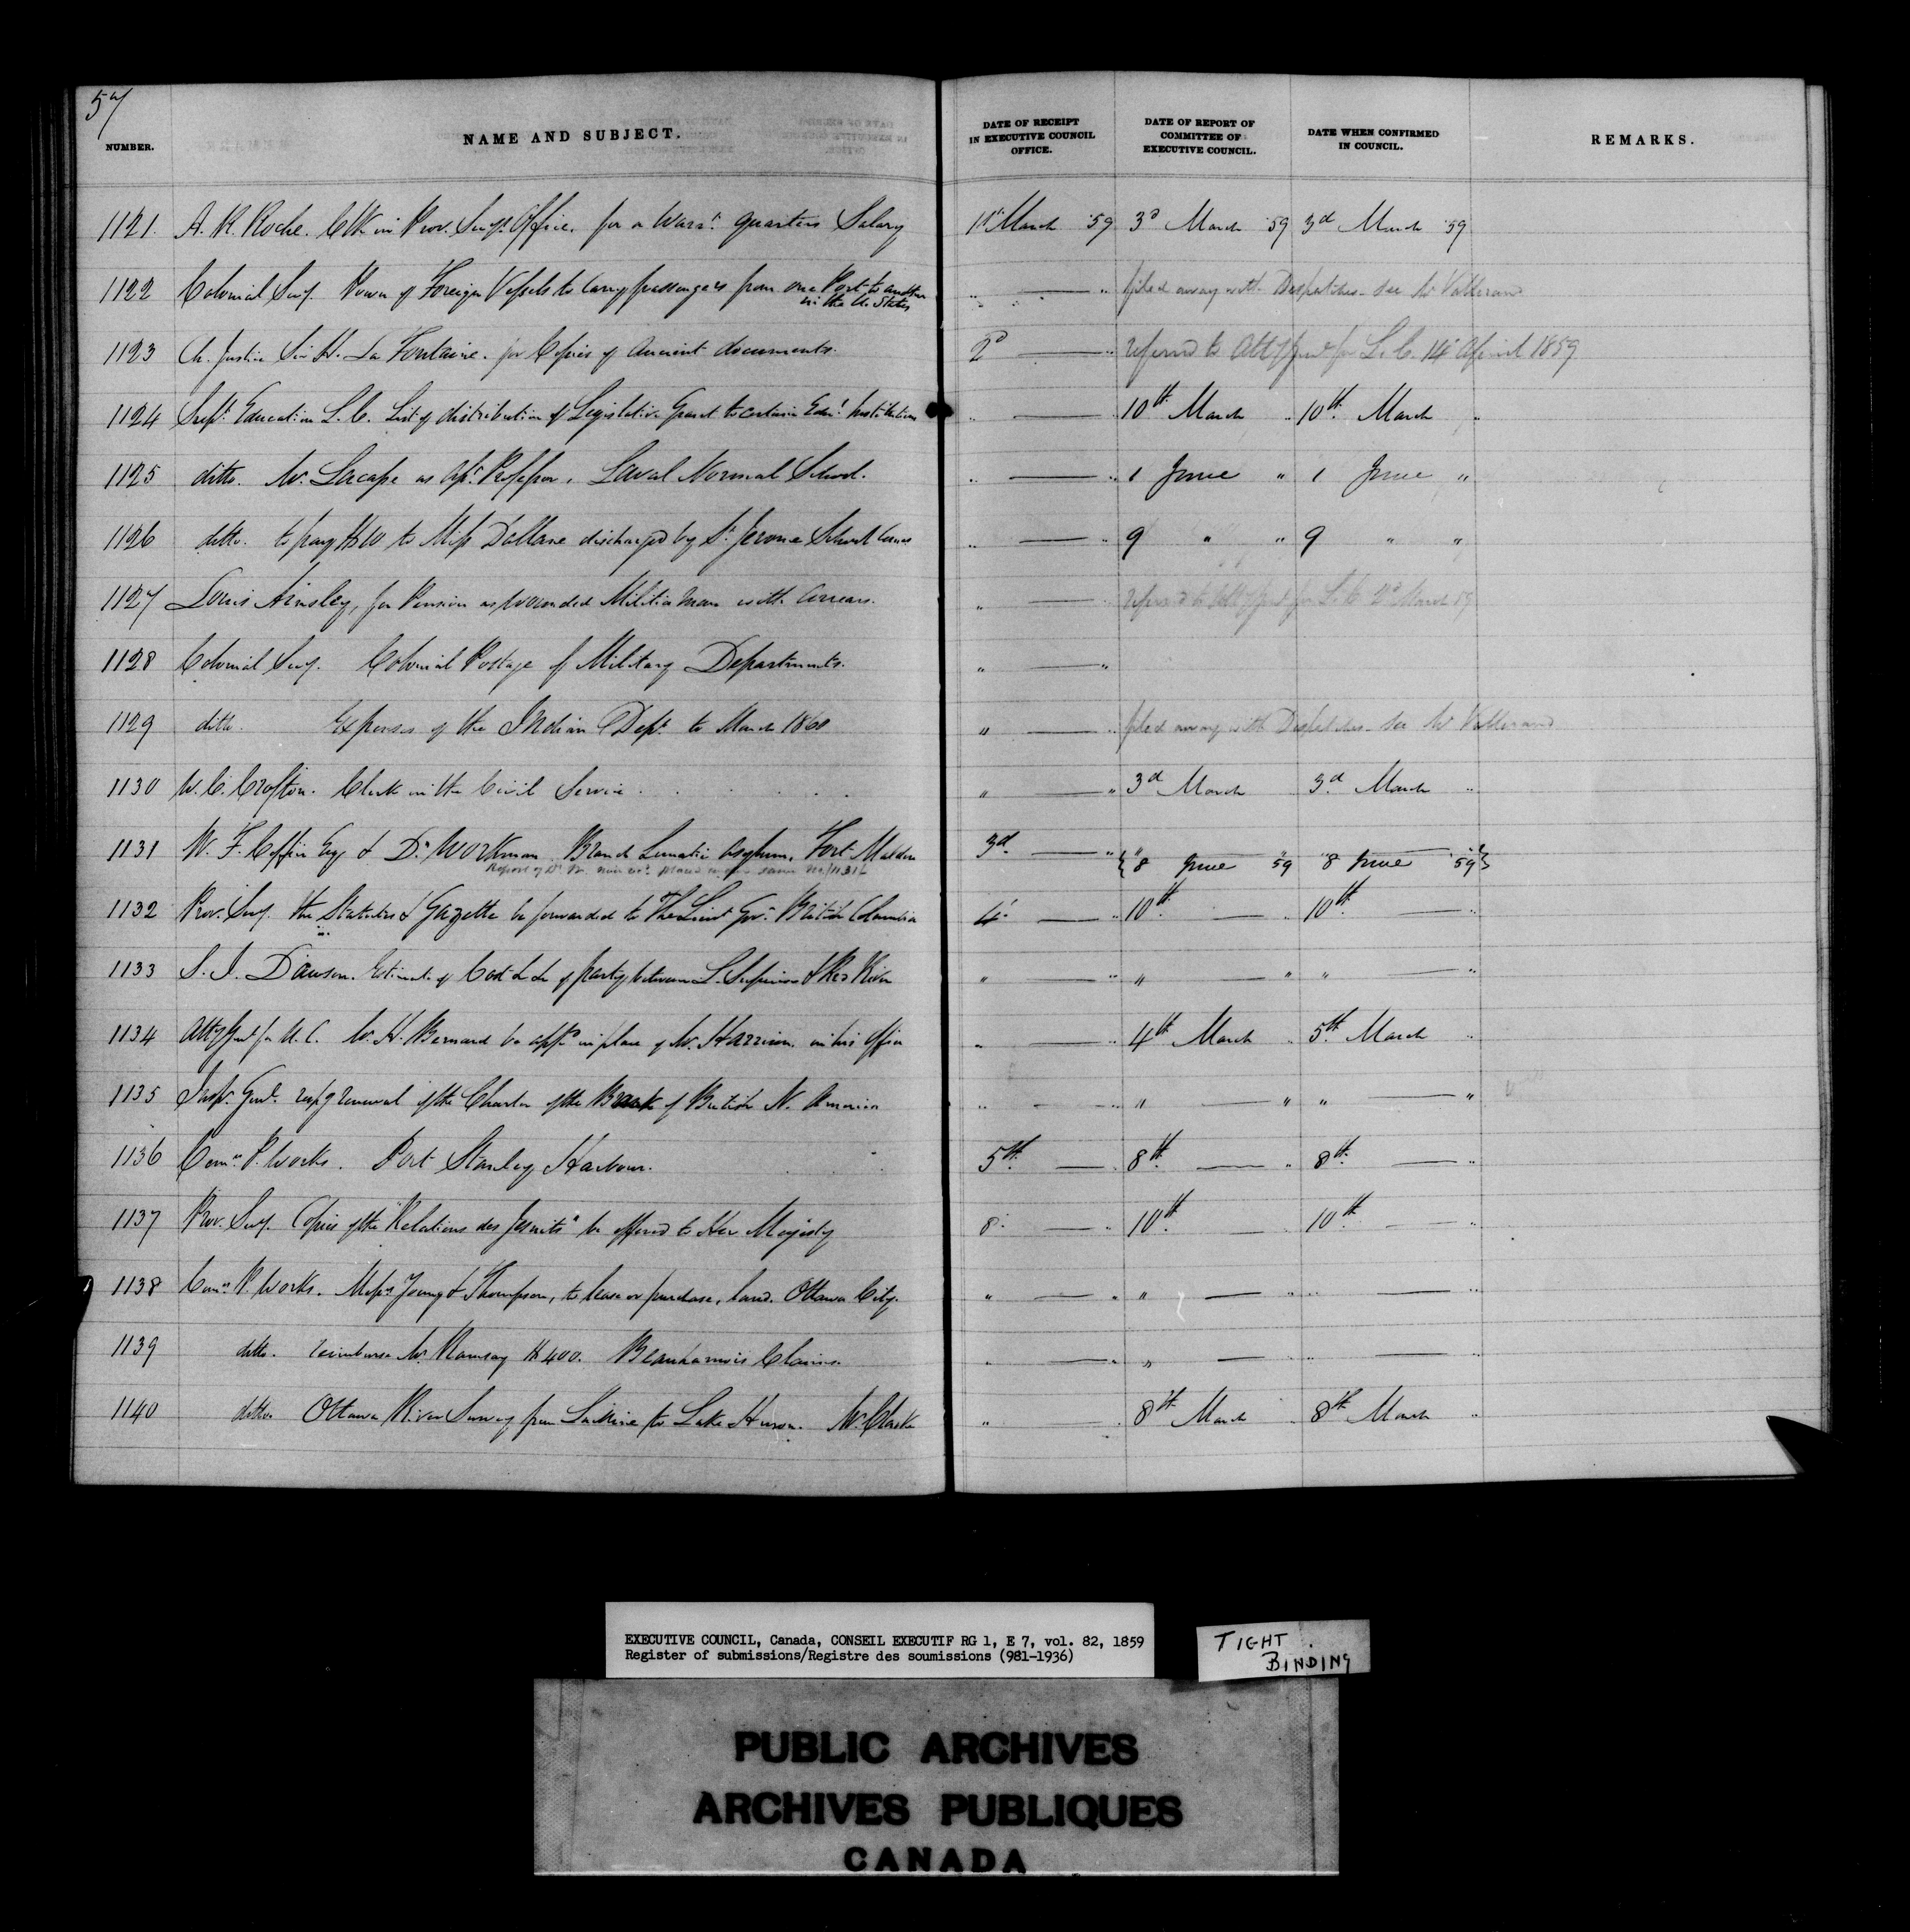 57
NUMBER. NAME AND SUBJECT. DATE OF RECEIPT IN EXECUTIVE COUNCIL OFFICE. DATE OF REPORT OF COMMITTEE OF EXECUTIVE COUNCIL. DATE WHEN CONFIRMED IN COUNCIL. REMARKS.
1121. A. R. Roche. Clk in Prov. Secy's Office. for a Warrt. quarters Salary 1st March '59 3d March '59 3rd March '59
1122 Colonial Secy. Power of Foreign Vessels to carry passengers from one Port to another in the U. States " — " filed away with Despatches - see Mr
1123 Ch. Justice Sir H. La Fontaine. for Copies of Ancient documents. 2d — " referred to Atty Genl for L. C. 14 April 1859
1124 Supt. Education L. C. List of distribution of Legislative Grant to certain Educl. Institutions " — " 10th March " 10th March "
1125 ditto. Mr. Lacasse as Asst. Professor, Laval Normal School. " — " 1 June " 1 June "
1126 ditto. to pay to Miss Dallane discharged by St. Jerome School " — " 9 " " 9 " "
1127 Louis Ainsley, for Pension as wounded Militia man with Arrears. " — " referred to Atty Genl for L. C. 2d March 59
1128 Colonial Secy. Colonial Postage of Military Departments. " — "
1129 ditto. Expenses of the Indian Dept. to March 1860 " — " filed away with Despatches - see Mr
1130 W. C. Crofton. Clerk in the Civil Service . . . . . " — " 3d March 3d March "
1131 W. F. Coffin Esq & Dr Workman Branch Lunatic Asylum, Fort Malden 3d. — " { 8 June 59 8 June 59 }
1132 Prov. Secy. the Statutes & Gazette be forwarded to The Lieut Govr. British Columbia 4 — " 10th. — " 10th. — "
1133 S. J. Dawson. Estimate of Cost &c &c of party between L. Superior & Red River " — " " — " " — "
1134 Atty Genl for U. C. Mr. H. Bernard be appd in place of Mr. Harrison in his Office " — " 4th March " 5th March "
1135 Inspr. Genl. resp'g renewal of the Charter of the Bank of British N. America " — " " — " " — "
1136 Comrs. P. Works. Port Stanley Harbour. 5th. — " 8th. — " 8th. — "
1137 Prov. Secy. Copies of the "Relations des Jesuits" be offered to Her Majesty 8. — " 10th. — " 10th. — "
1138 Comrs. P. Works. Messrs Young & Thompson, to lease or purchase, land. Ottawa City. " — " " — " " — "
1139 ditto. reimburse Mr. Ramsay $400. Beauharnois Claims. " — " " — " " — "
1140 ditto Ottawa River Survey from Lachine to Lake Huron. Mr. Clarke " " 8th March " 8th March "
EXECUTIVE COUNCIL, Canada, CONSEIL EXECUTIF RG 1, E 7, vol. 82, 1859
Register of submissions/Registre des soumissions (981-1936)
TIGHT
BINDING
PUBLIC ARCHIVES
ARCHIVES PUBLIQUES
CANADA